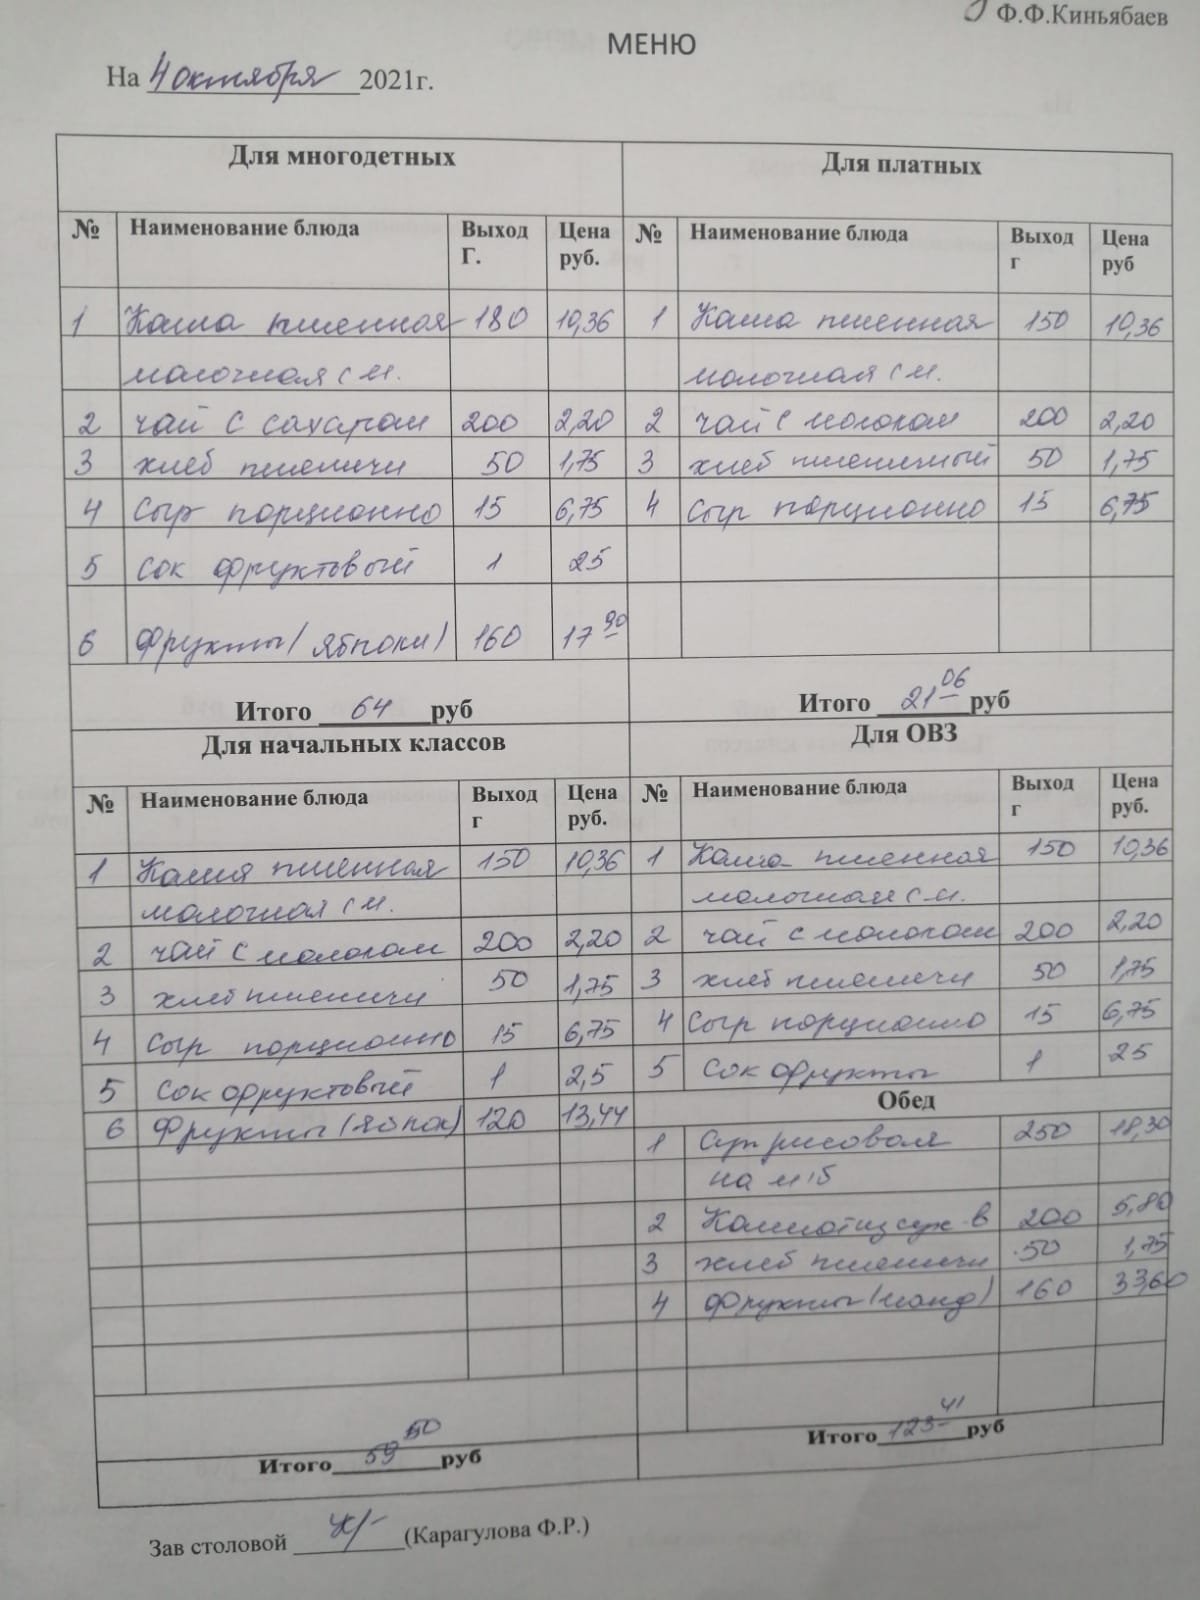 Ф.Ф.Киньябаев
МЕНЮ
На 4 октября 2021г.
Для многодетных
№ Наименование блюда Выход Г. Цена руб.
1 Каша пшенная 180 10,36
молочная с м.
2 чай с сахаром 200 2,20
3 хлеб пшеничн 50 1,75
4 Сыр порционно 15 6,75
5 Сок фруктовый 1 25
6 Фрукты (яблоки) 160 17 90
Итого 64 руб
Для платных
№ Наименование блюда Выход г Цена руб
1 Каша пшенная 150 10,36
молочная с м.
2 чай с молоком 200 2,20
3 хлеб пшеничный 50 1,75
4 Сыр порционно 15 6,75
Итого 21 06 руб
Для начальных классов
№ Наименование блюда Выход г Цена руб.
1 Каша пшенная 150 10,36
молочная с м.
2 чай с молоком 200 2,20
3 хлеб пшеничн 50 1,75
4 Сыр порционно 15 6,75
5 Сок фруктовый 1 2,5
6 Фрукты (яблок) 120 13,44
Итого 59 50 руб
Для ОВЗ
№ Наименование блюда Выход г Цена руб.
1 Каша пшенная 150 10,36
молочная с м.
2 чай с молоком 200 2,20
3 хлеб пшеничн 50 1,75
4 Сыр порционно 15 6,75
5 Сок фрукты 1 25
Обед
1 Суп рисовая 250 18,30
на м/б
2 Компот из сух-в 200 5,80
3 хлеб пшеничн 50 1,75
4 Фрукты (манд) 160 33,60
Итого 123 41 руб
Зав столовой (Карагулова Ф.Р.)